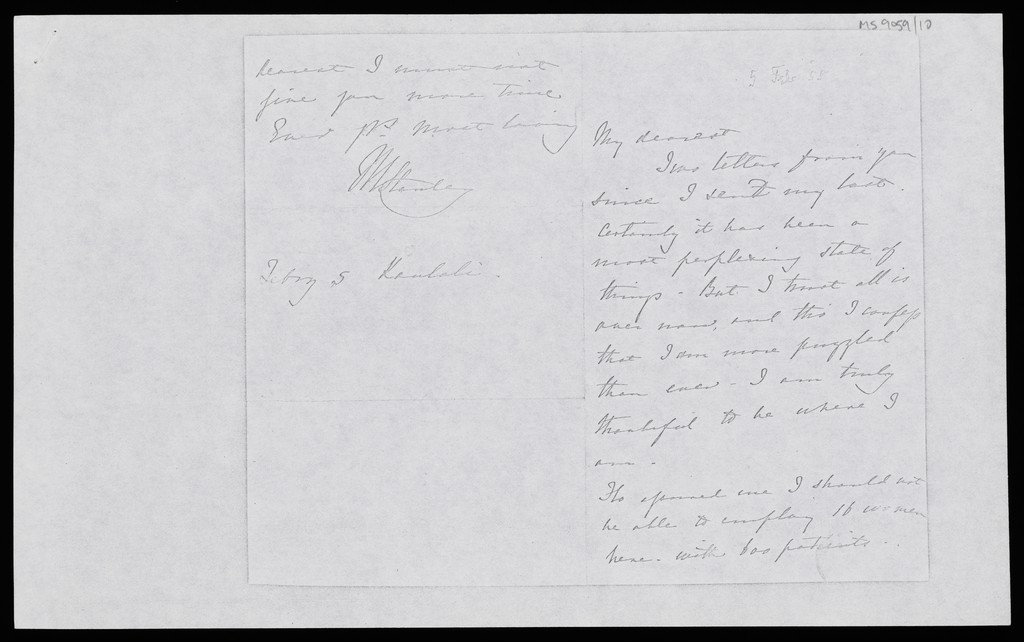 MS 9059/10
dearest I must not
give you more time
Ever yrs most loving
MStanley
Febry 5 Koulali.
5 Feb 55
My dearest
Two letters from you
since I sent my last.
Certainly it has been a
most perplexing state of
things - But I trust all is
over now, and tho I confess
that I am more puzzled
than ever - I am truly
thankful to be where I
am -
me I should not
be able to employ 16 women
here - with 600 patients -